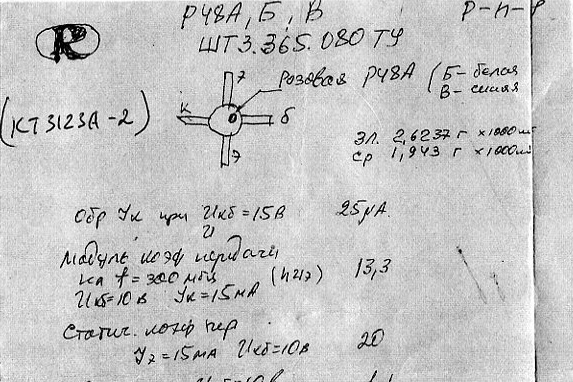 Р48А, Б, В р-п-р
ЩТ3.365.080ТУ
R
Э
Розовая Р48А (Б-белая
В-синяя
(КТ3123А-2)
К
б
Э
Эл. 2,6237 г х1000шт
Ср 1,943 г х1000шт
Обр Iк при Uкб=15В 25μА.
Модуль коэф передачи
на f=300мгц (h21э) 13,3
Uкб=10В Iк=15мА
Статич. коэф пер 20
Iэ=15мА Uкб=10В